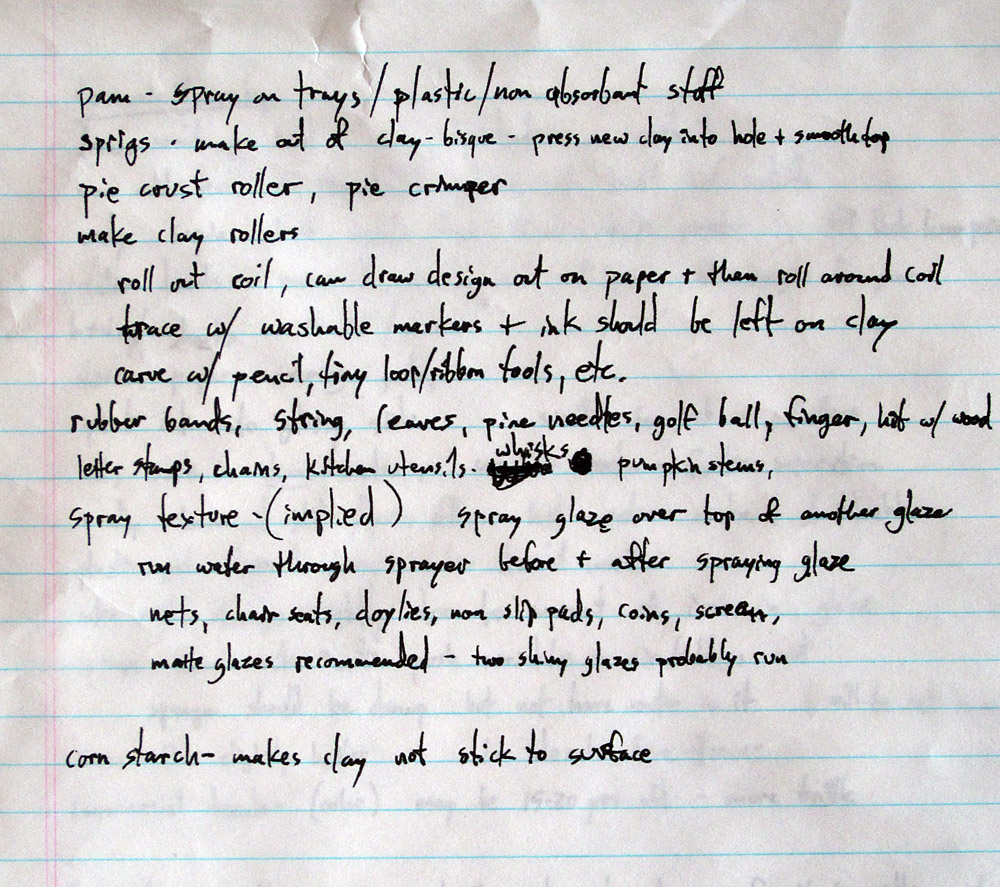 pam - spray on trays/plastic/non absorbant stuff
sprigs - make out of clay-bisque - press new clay into hole + smooth top
pie crust roller, pie crimper
make clay rollers
roll out coil, can draw design out on paper + then roll around coil
trace w/ washable markers + ink should be left on clay
carve w/ pencil, tiny loop/ribbon tools, etc.
rubber bands, string, leaves, pine needles, golf ball, finger, hit w/ wood
letter stamps, chains, kitchen utensils. whisks pumpkin stems,
spray texture - (implied) spray glaze over top of another glaze
run water through sprayer before + after spraying glaze
nets, chair seats, doylies, non slip pads, coins, screen,
matte glazes recommended - two shiny glazes probably run
corn starch - makes clay not stick to surface